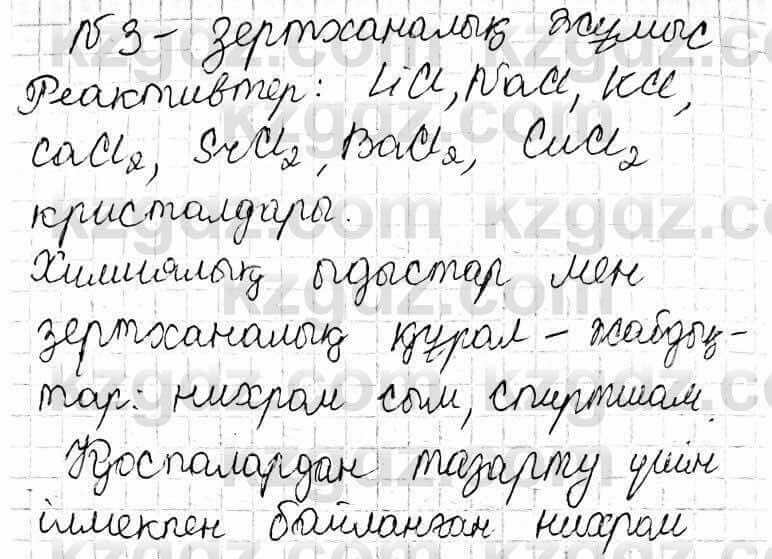 №3 - зертханалық жұмыс
Реактивтер: LiCl, NaCl, KCl,
CaCl₂, SrCl₂, BaCl₂, CuCl₂
кристалдары.
Химиялық ыдыстар мен
зертханалық құрал - жабдық-
тар: нихром сым, спиртшам.
Қоспалардан тазарту үшін
ілмекпен байланған нихром
kzgdz.com